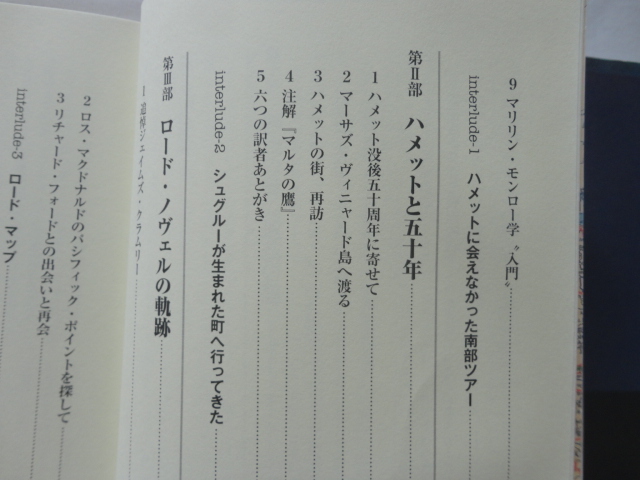 9 マリリン・モンロー学〝入門〟
interlude-1 ハメットに会えなかった南部ツアー
第Ⅱ部 ハメットと五十年
1 ハメット没後五十周年に寄せて
2 マーサズ・ヴィニャード島へ渡る
3 ハメットの街、再訪
4 注解『マルタの鷹』
5 六つの訳者あとがき
interlude-2 シュグルーが生まれた町へ行ってきた
第Ⅲ部 ロード・ノヴェルの軌跡
1 追悼ジェイムズ・クラムリー
2 ロス・マクドナルドのパシフィック・ポイントを探して
3 リチャード・フォードとの出会いと再会
interlude-3 ロード・マップ